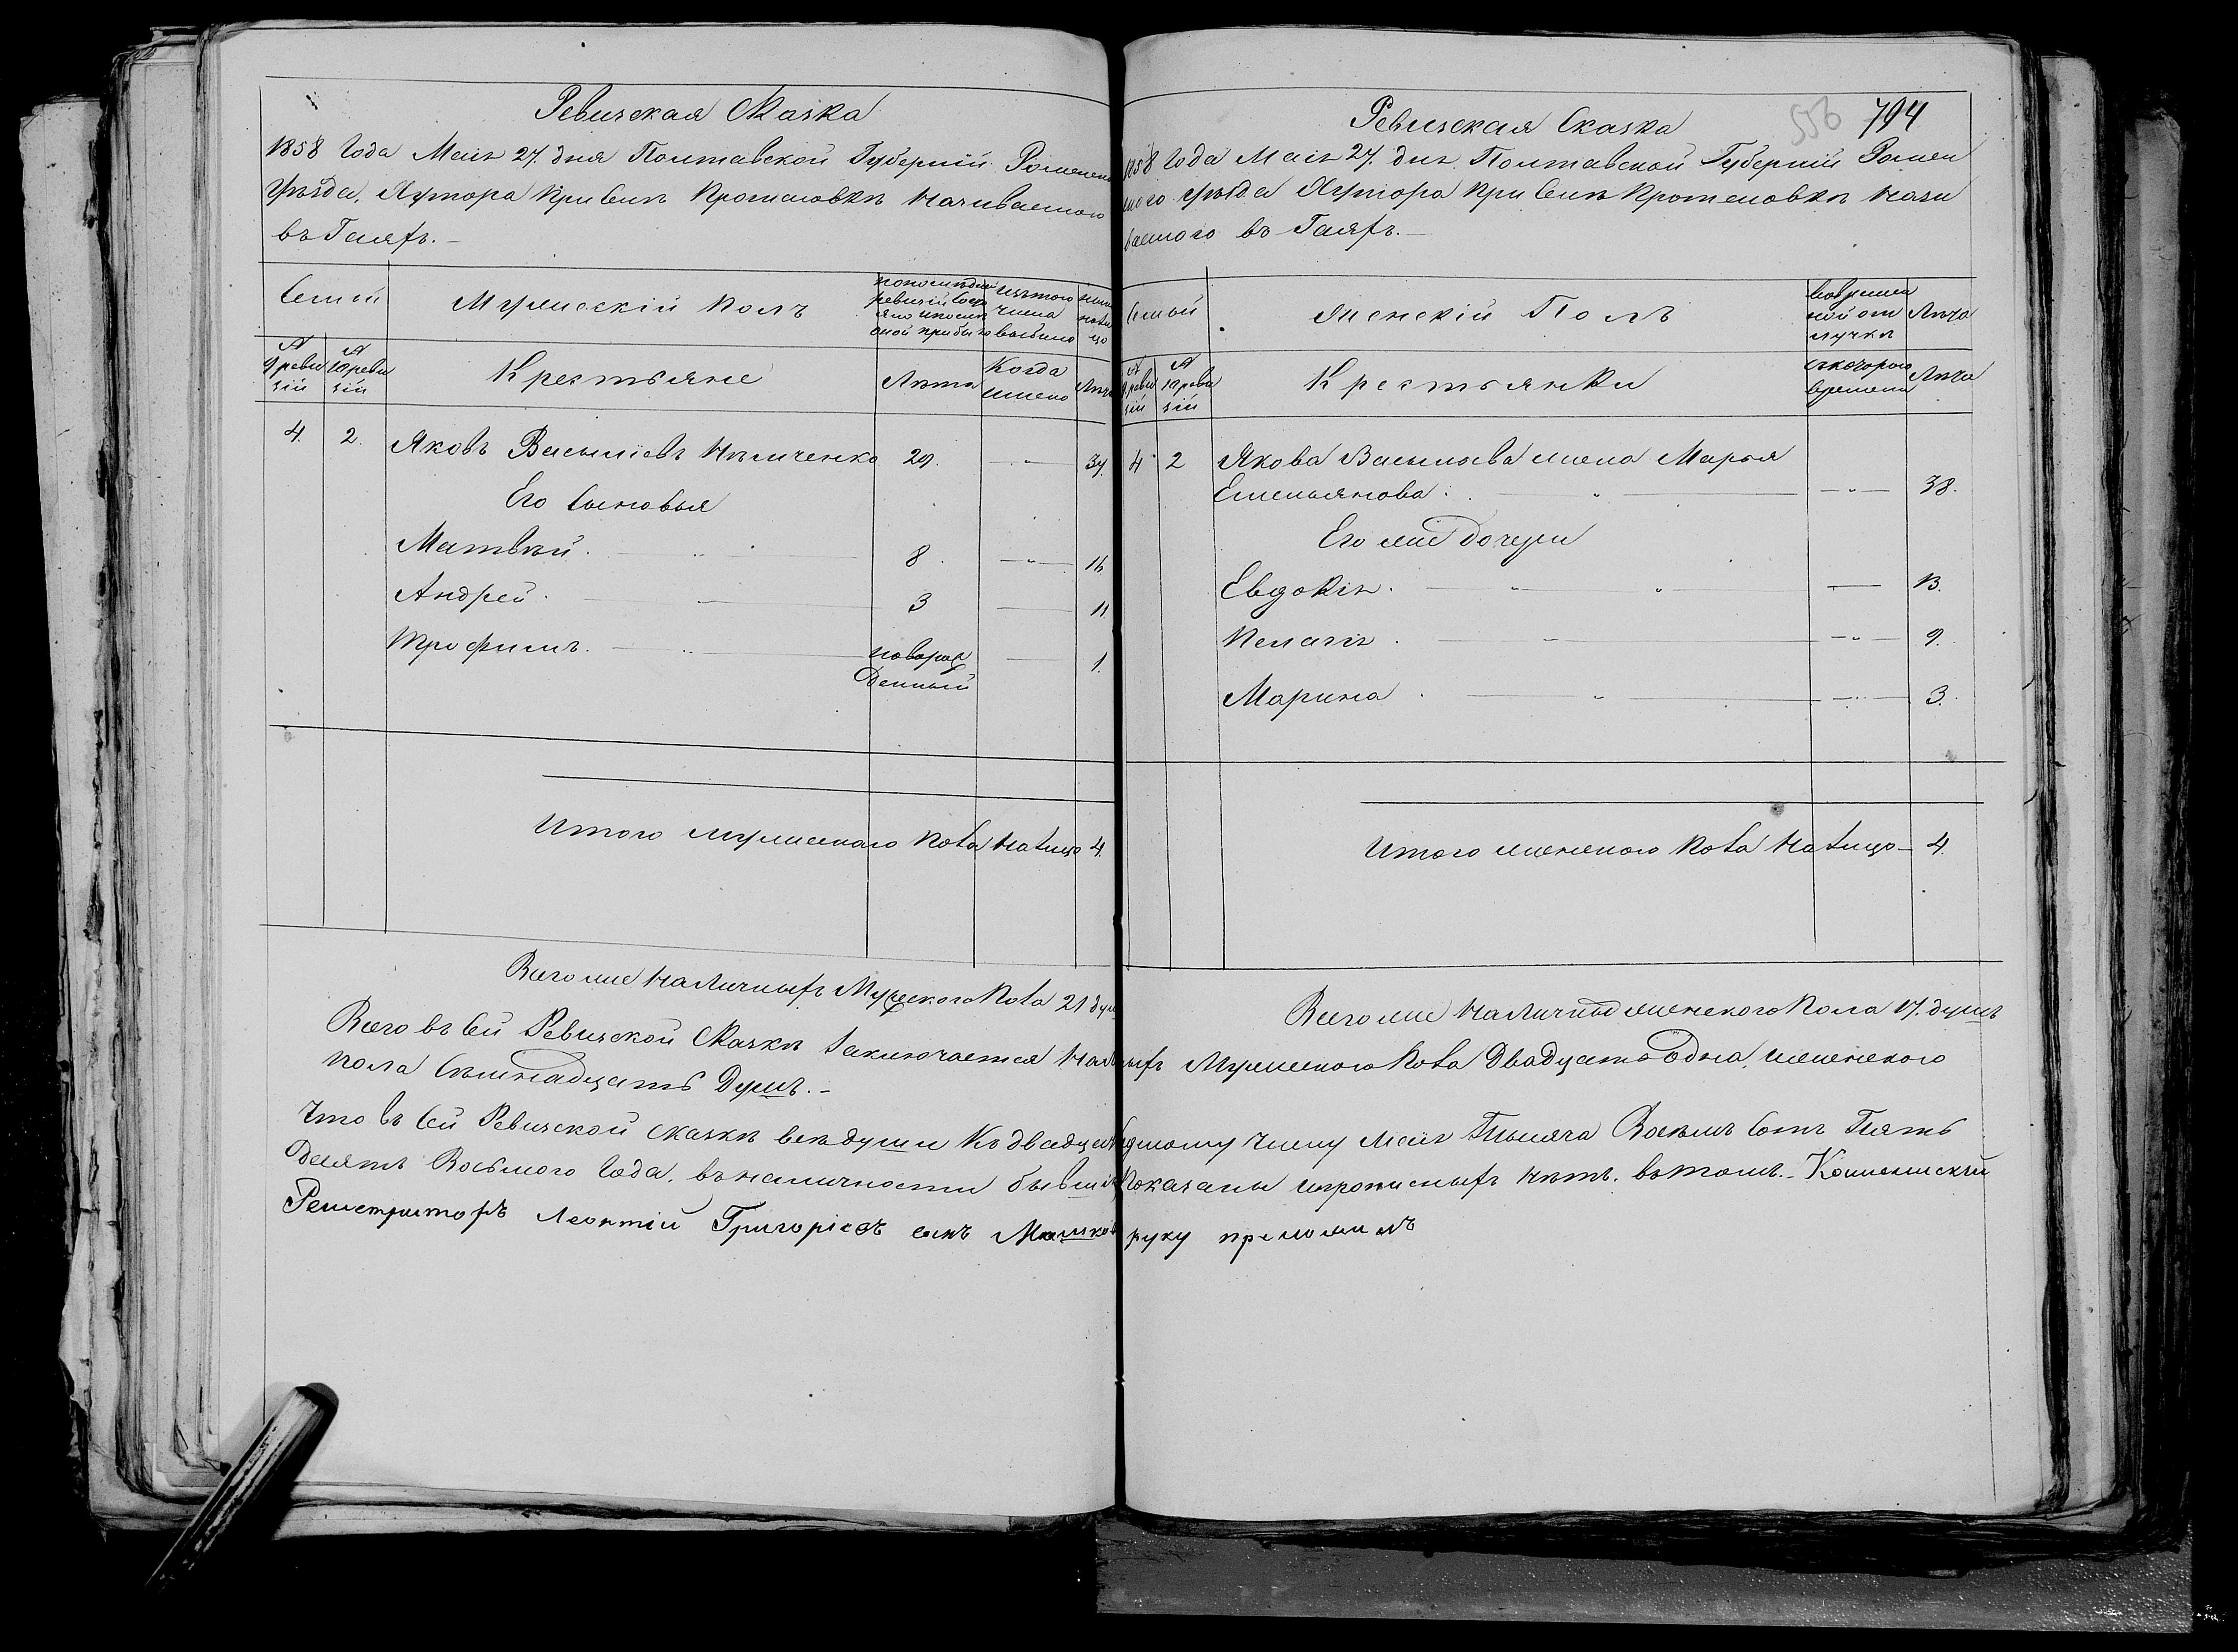 Ревизская Сказка
1858 Года Маія 27. дня Полтавской Губерніи Роменска
Уѣзда, Хутора при Селѣ Протасовкѣ называемого
въ Гаяхъ.
Семьи
Мужескій Полъ
По последней ревизіи состояло и после оной прибыло
Изъ того числа выбыло
Ныне на лицо
№ 9 ревизіи
№ 10 ревизіи
Крестьяне
Лѣта
Когда имено
Лѣта
4. 2. Яковъ Васильевъ 29. 37.
Его Сыновья
Матвѣй. 8. 16
Андрей. 3 11
Трофимъ. новорожденный 1.
Итого мужескаго пола на лицо 4.
Всего мне наличныхъ Мужеского пола 21 душ
Ревизская Сказка
556 794
1858 Года Маія 27. дня Полтавской Губерніи Ромен
ского Уѣзда Хутора при Селѣ Протасовкѣ назы
ваемого въ Гаяхъ.
Семьи
Женскій Полъ
Во временной отлучкѣ
Лѣта
№ 9 ревизіи
№ 10 ревизіи
Крестьянки
Съ котораго времени
Лѣта
4 2 Якова Васильева жена Марья
Емельянова. 38.
Его же дочери
Евдокія. 13.
Пелагія. 9.
Марина. 3.
Итого женского пола на лицо 4.
Всего мне наличныхъ женского пола 17. душъ
Всего въ Сей Ревизской Сказкѣ заключается наличныхъ Мужеского пола Двадцать Одна, женского
пола Семнадцать Душъ.
Что въ Сей Ревизской сказкѣ все души къ двадцать седьмому числу Маія Тысяча Восемь Сотъ Пять
Десятъ Восьмого Года, въ наличности бывшія показаны и прописныхъ нѣтъ. въ томъ. Коллежскій
Регистраторъ Леонтій Григоріевъ сынъ руку приложилъ